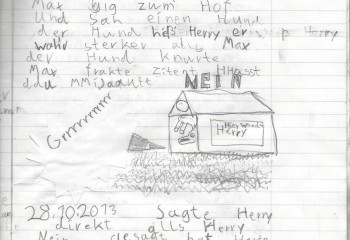 Max big zum Hof
Und Sah einen Hund
der Hund hiß Herry er
Herry
wahr sterker als Max
der Hund knurte
Max frakte zitent HHasst
ddu MMijaddtt
NEIN
Grrrrrrrrrr
Herry
28.10.2013 Sagte Herry
direkt alls Herry
Nein gesagt hat